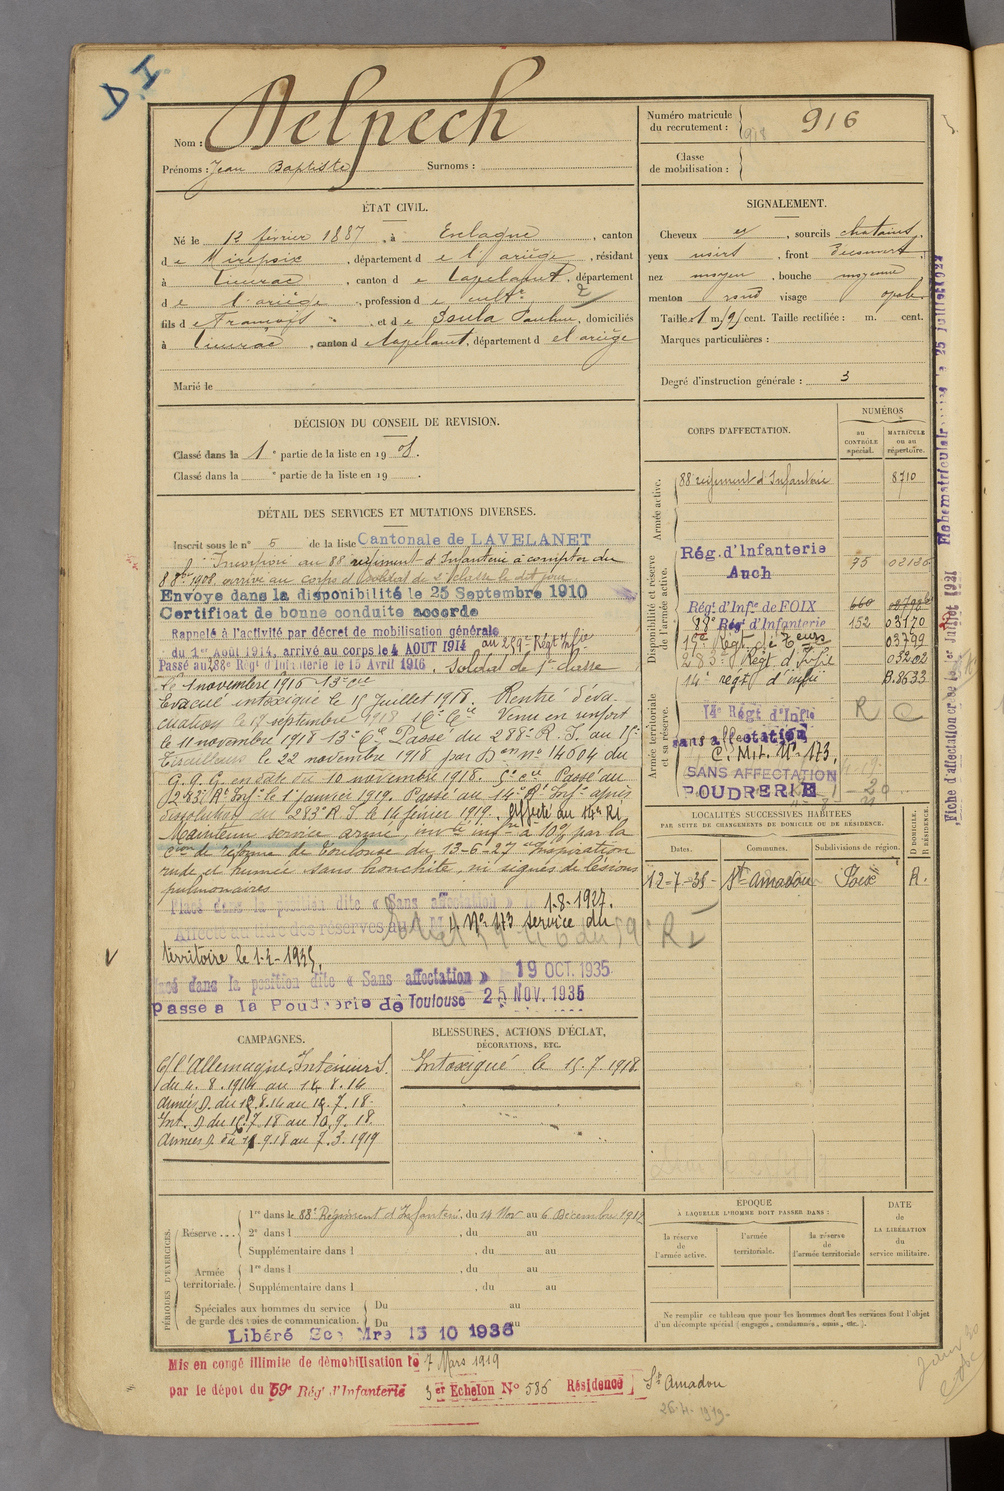 D. I
Nom : Delpech
Prénoms : Jean Baptiste Surnoms :
Numéro matricule du recrutement : 916
918
Classe de mobilisation :
ÉTAT CIVIL.
Né le 12 février 1887, à Esclagne, canton
d e Mirepoix, département d e l'ariège, résidant
à Lieurac, canton d e Lavelanet, département
d e l'ariège, profession d e cultr
2
fils d e François et d e Soula Pauline, domiciliés
à Lieurac, canton d e Lavelanet, département d e l'ariège
Marié le
SIGNALEMENT.
Cheveux et, sourcils chatains,
yeux noirs, front découvert,
nez moyen, bouche moyenne
menton rond visage
Taille : 1 m. cent. Taille rectifiée : m. cent.
Marques particulières :
Degré d'instruction générale : 3
DÉCISION DU CONSEIL DE REVISION.
Classé dans la 1e partie de la liste en 1908.
Classé dans la e partie de la liste en 19 .
DÉTAIL DES SERVICES ET MUTATIONS DIVERSES.
Inscrit sous le n° 5 de la liste Cantonale de LAVELANET
Incorporé au 88e régiment d'Infanterie à compter du
8 8bre 1908. arrivé au corps et soldat de 2e classe le dit jour
Envoyé dans la disponibilité le 25 Septembre 1910
Certificat de bonne conduite accordé
Rappelé à l'activité par décret de mobilisation générale
du 1er Août 1914, arrivé au corps le 4 AOUT 1914 au 259e Régt Infie
Passé au 288e Régt d'Infanterie le 15 Avril 1916. Soldat de 1re classe
le 1 novembre 1916 13e Cie
Evacué intoxiqué le 15 Juillet 1918. Rentré d'éva
cuation le 18 septembre 1918 16e Cie Venu en renfort
le 11 novembre 1918 13e Cie Passé du 288e R.I. au 15e
Tirailleurs le 22 novembre 1918 par Don no 14004 du
G.Q.G. en date du 10 novembre 1918. 5e Cie Passé au
283e Rt Infie le 1er janvier 1919. Passé au 14e Rt Infie après
dissolution du 283e R.I. le 14 février 1919. affecté au 14e RI
Maintenu service armé invté infre à 10% par la
Cion de réforme de Toulouse du 13-6-27 inspiration
rude et humée sans bronchite, ni signes de lésions
pulmonaires
Placé dans la position dite « Sans affectation » le 1-8-1927.
Affecté au titre des réserves au C.M. N° 173 service du
territoire le 1-2-1935.
Placé dans la position dite « Sans affectation » 19 OCT. 1935
Passé à la Poudrerie de Toulouse 25 NOV. 1935
CORPS D'AFFECTATION.
NUMÉROS
au CONTRÔLE spécial.
MATRICULE ou au répertoire.
Armée active.
88e régiment d'Infanterie 8710
Disponibilité et réserve de l'armée active.
Rég. d'Infanterie
Auch 75
Régt d'Infie de FOIX 660
88e Régt d'Infanterie 152 03170
15e Régt de Teurs 03799
283e Régt d'Infie 03202
14e régt d'infie B.8633
Armée territoriale et sa réserve.
14e Régt d'Infie R C
sans affectation
C. M.I. N° 173.
SANS AFFECTATION
POUDRERIE
LOCALITÉS SUCCESSIVES HABITÉES
PAR SUITE DE CHANGEMENTS DE DOMICILE OU DE RÉSIDENCE.
Dates. Communes. Subdivisions de région. D DOMICILE. R RÉSIDENCE.
12-7-35- St-Amadou Foix R.
Fiche d'affectation créée le 1er Juillet 1931
CAMPAGNES.
C/ l'Allemagne. Intérieur S.
du 4.8.1914 au 14.8.14
BLESSURES, ACTIONS D'ÉCLAT,
DÉCORATIONS, ETC.
Intoxiqué le 15.7.1918.
PÉRIODES D'EXERCICES.
Réserve ... 1re dans le 88e Régiment d'Infanterie, du 14 Nov au 6 Décembre 1912
2e dans l , du au
Supplémentaire dans l , du au
Armée territoriale. 1re dans l , du au
Supplémentaire dans l , du au
Spéciales aux hommes du service de garde des voies de communication. Du au
Du au
ÉPOQUE
À LAQUELLE L'HOMME DOIT PASSER DANS :
la réserve de l'armée active.
l'armée territoriale.
la réserve de l'armée territoriale
DATE de LA LIBÉRATION du service militaire.
Ne remplir ce tableau que pour les hommes dont les services font l'objet
d'un décompte spécial (engagés, condamnés, omis, etc.).
Libéré Mre 15 10 1936
Mis en congé illimité de démobilisation le 7 Mars 1919
par le dépôt du 59e Rég. d'Infanterie 3er Echelon N° 586 Résidence St Amadou
26-4-1919-